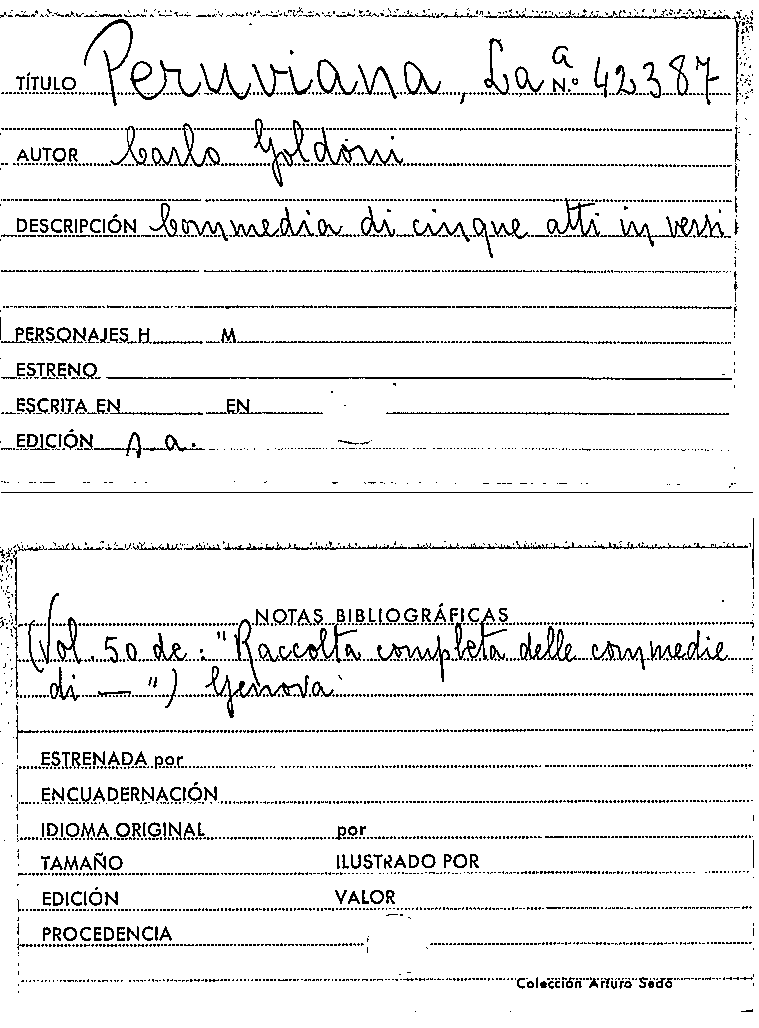 TÍTULO Peruviana, La a N.º 42387
AUTOR Carlo Goldoni
DESCRIPCIÓN Commedia di cinque atti in versi
PERSONAJES H M
ESTRENO
ESCRITA EN EN
EDICIÓN s. a.
NOTAS BIBLIOGRÁFICAS
(Vol. 50 de: "Raccolta completa delle commedie
di — ") Genova
ESTRENADA por
ENCUADERNACIÓN
IDIOMA ORIGINAL por
TAMAÑO ILUSTRADO POR
EDICIÓN VALOR
PROCEDENCIA
Colección Arturo Sedó